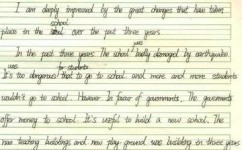 I am deeply impressed by the great changes that have taken
school
place in the over the past three years.
was
In the past three years. The school badly damaged by earthquake.
was for students
It's too dangerous that to go to school and more and more students
wouldn't go to school. However In favor of governments, The governments
offer money to school. It's useful to build a new school. The
new teaching buildings and new play-ground was building in three years